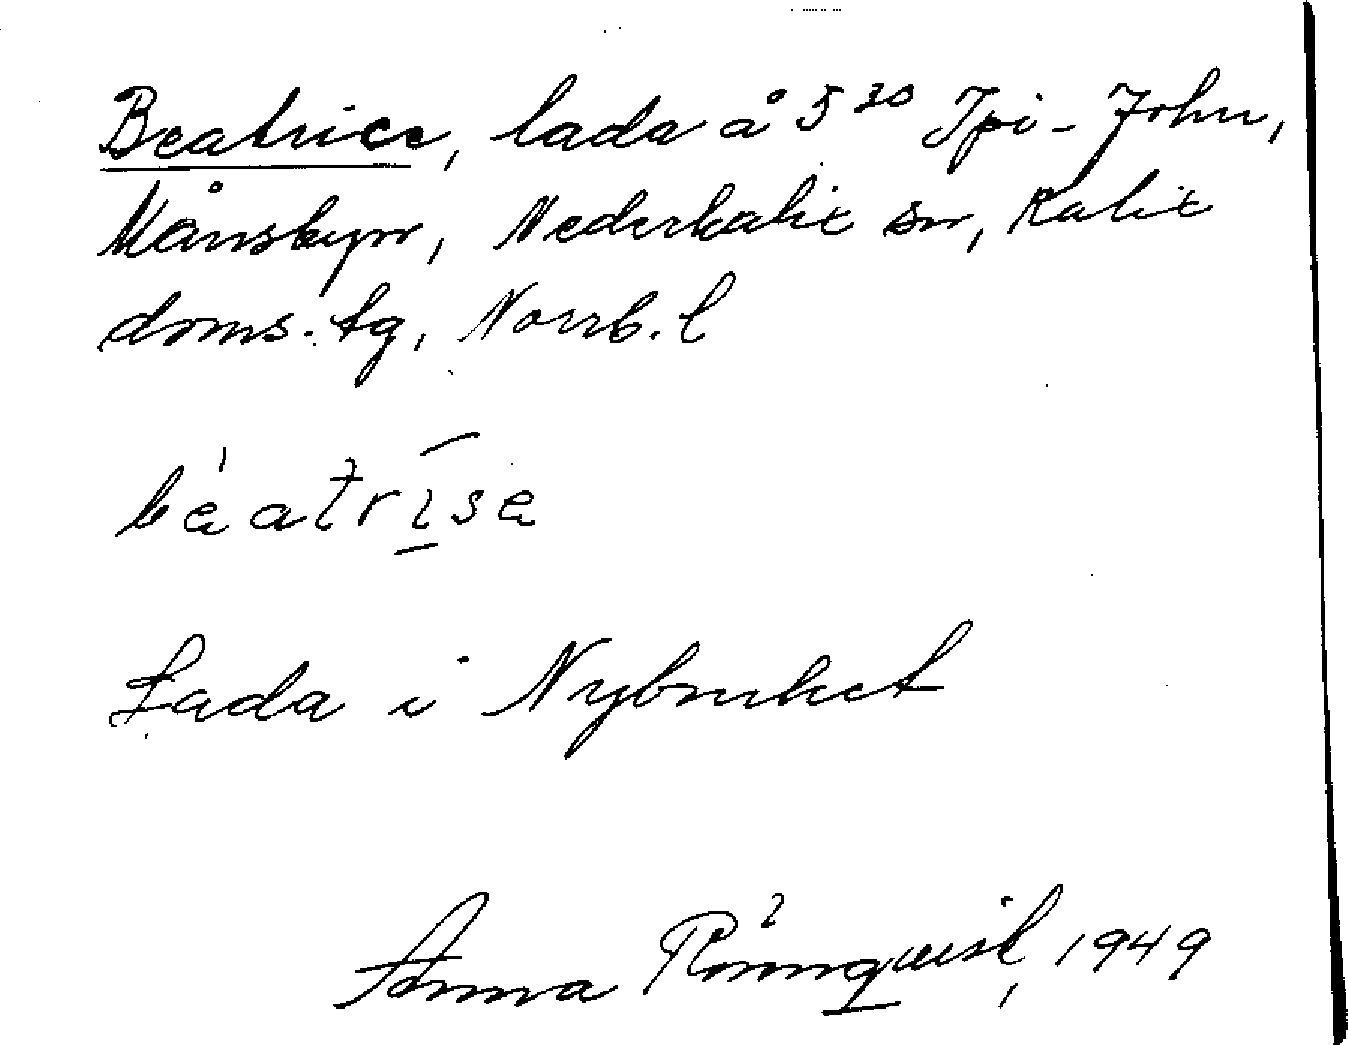 Beatrice, lada å 5²⁰ Ipi-John,
Månsbyn, Nederkalix sn, Kalix
doms. tg, Norrb. l
béatrīse
Lada i Nybruket
Anna Rönnquist, 1949